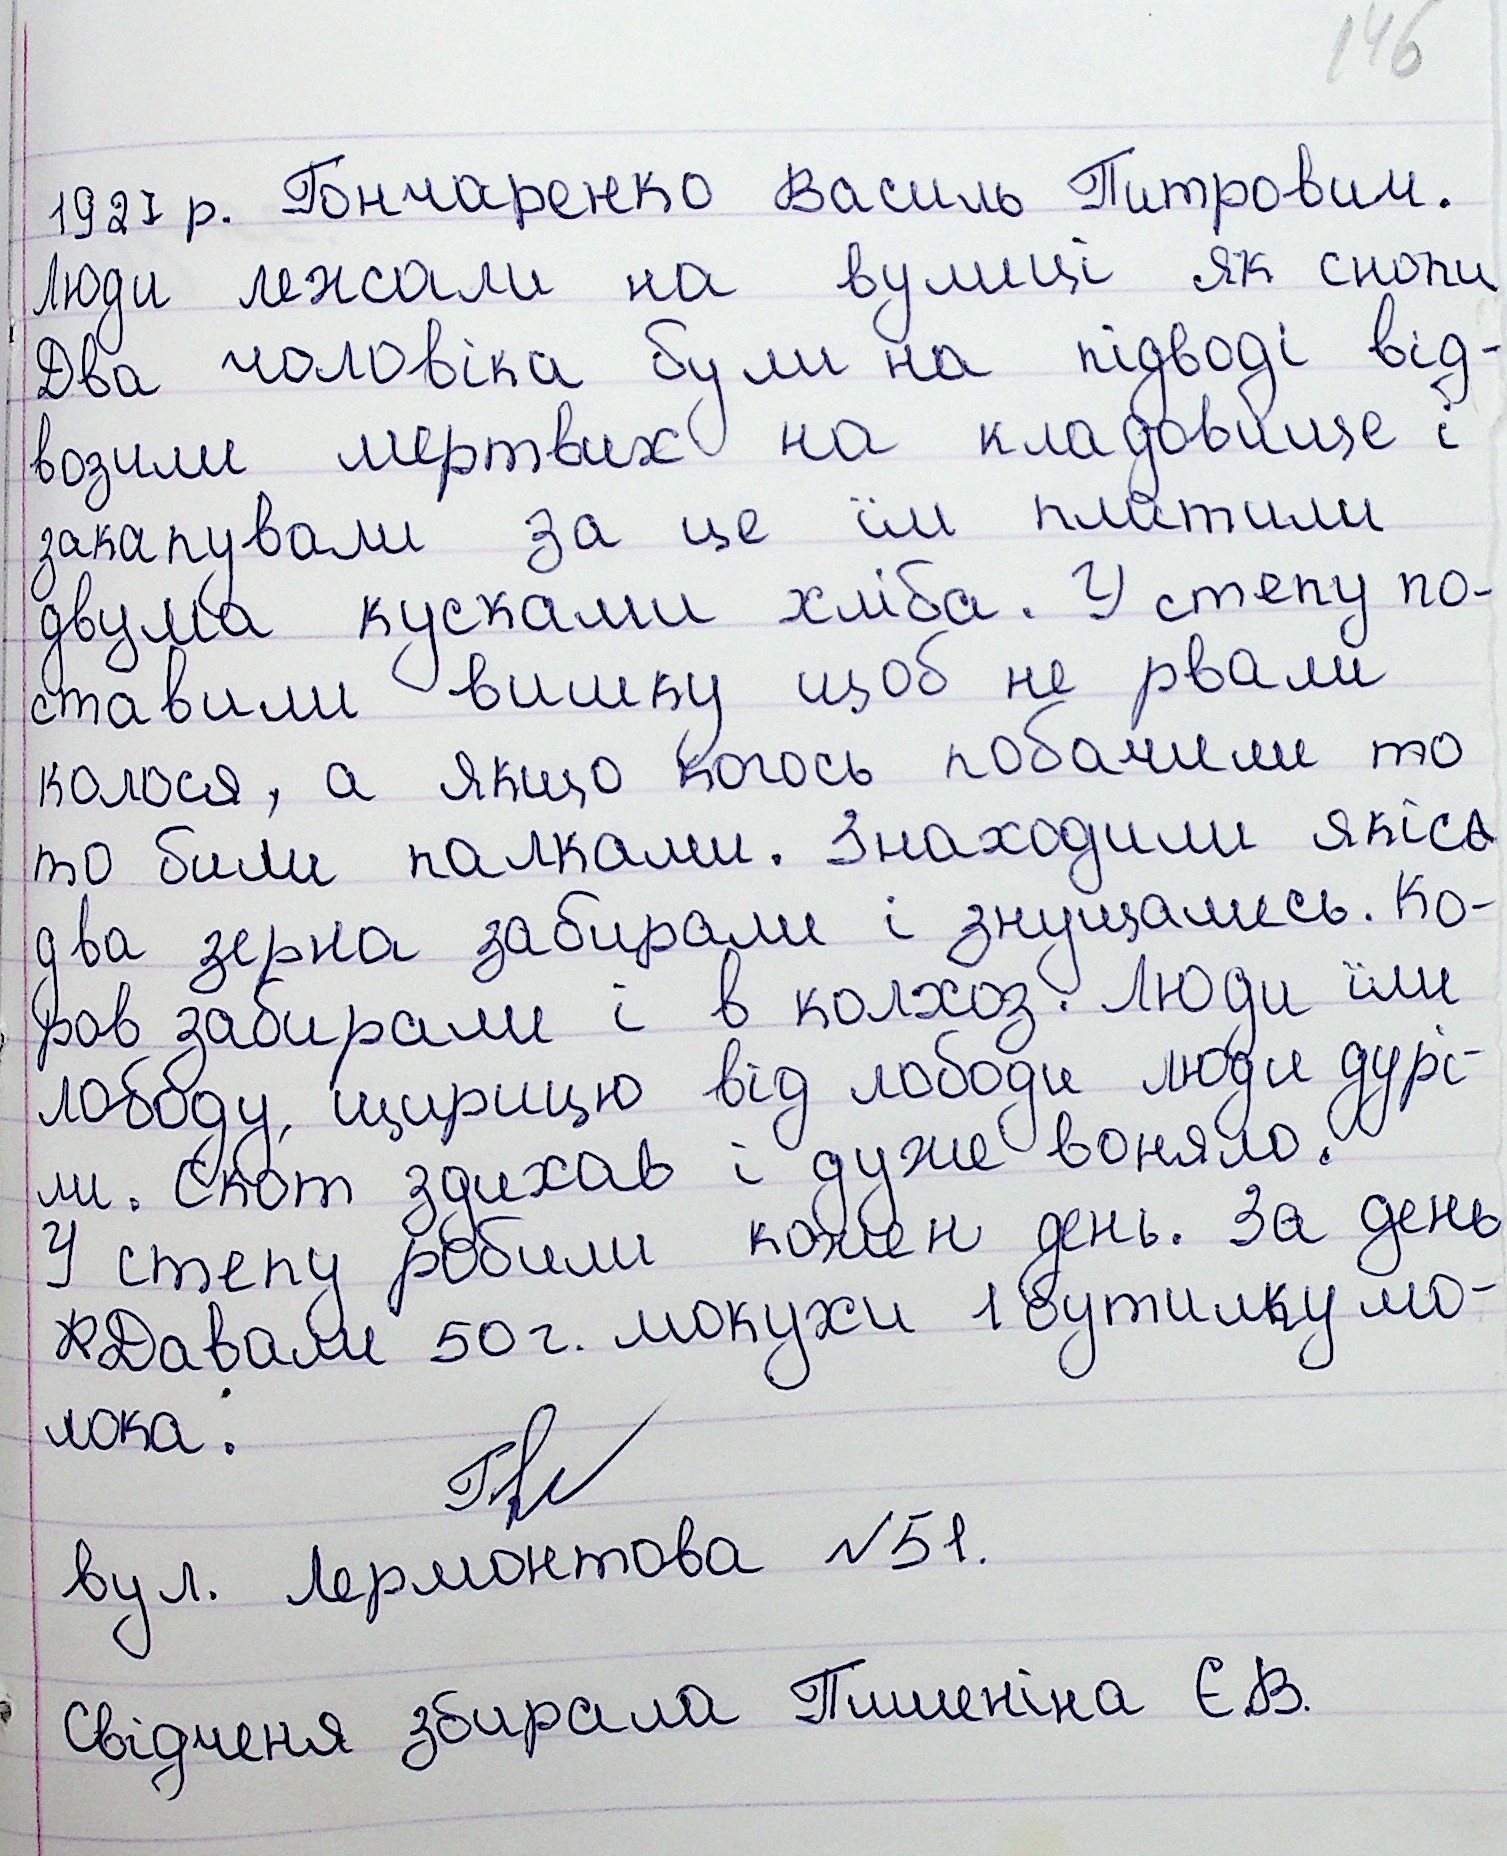 146
1927 р. Гончаренко Василь Питрович.
Люди лежали на вулиці як снопи
Два чоловіка були на підводі від-
возили мертвих на кладовище і
закапували за це їм платили
двума кусками хліба. У степу по-
ставили вишку щоб не рвали
колося, а якщо когось побачили то
то били палками. Знаходили якісь
два зерна забирали і знущались. Ко-
ров забирали і в колхоз. Люди їли
лободу, щирицю від лободи люди дурі-
ли. Скот здихав і дуже воняло.
У степу робили кожен день. За день
Давали 50 г. мокухи 1 бутилку мо-
лока.
вул. Лермонтова №51.
Свідченя збирала Пшеніна Є.В.